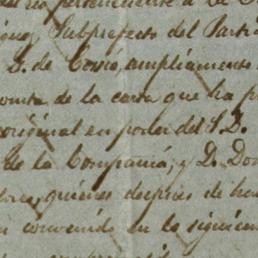 perteneciente á la
Subprefecto del Parti
D. de Cossio, ampliamente
consta de la carta que ha p
original en poder del S. D.
de la Compañia, y D. Do
quiénes después de ha
n convenido en lo siguien